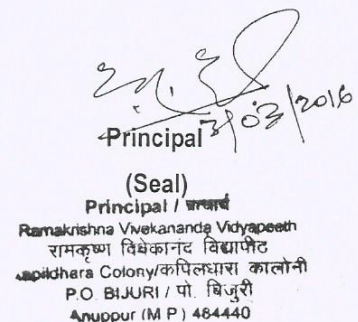 3/03/2016
Principal
(Seal)
Principal / प्राचार्य
Ramakrishna Vivekananda Vidyapeeth
रामकृष्ण विवेकानंद विद्यापीठ
Kapildhara Colony/कपिलधारा कालोनी
P.O. BIJURI / पो. बिजुरी
Anuppur (M P) 484440